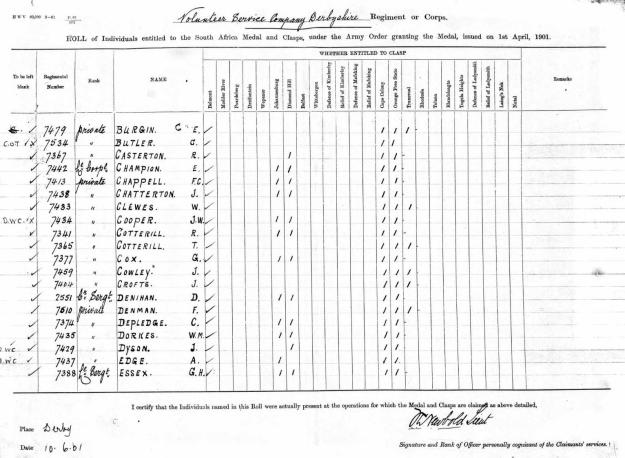 Volunteer Service Company Derbyshire Regiment or Corps.
ROLL of Individuals entitled to the South Africa Medal and Clasps, under the Army Order granting the Medal, issued on 1st April, 1901.
WHETHER ENTITLED TO CLASP
To be left blank Regimental Number Rank NAME Belmont Modder River Paardeberg Dreifontein Wepener Johannesburg Diamond Hill Belfast Wittebergen Defence of Kimberley Relief of Kimberley Defence of Mafeking Relief of Mafeking Cape Colony Orange Free State Transvaal Rhodesia Talana Elandslaagte Tugela Heights Defence of Ladysmith Relief of Ladysmith Laing's Nek Natal Remarks
7479 private BURGIN. E.
7534 " BUTLER. C.
7367 " CASTERTON. R.
7442 CHAMPION. E.
7413 private CHAPPELL. F.C.
7438 " CHATTERTON. J.
7433 " CLEWES. W.
D.W.C. 7434 " COOPER. J.W.
7341 " COTTERILL. R.
7365 " COTTERILL. T.
7377 " COX. G.
7459 " COWLEY. J.
7404 " CROFTS. J.
2551 Sergt. DENIHAN. D.
7510 private DENMAN. F.
7374 " DEPLEDGE. C.
7435 " DORKES. W.M.
7429 " DYSON. J.
7437 " EDGE. A.
7388 Sergt. ESSEX. G.H.
I certify that the Individuals named in this Roll were actually present at the operations for which the Medal and Clasps are claimed as above detailed,
Newbold Lieut
Place Derby
Date 10.6.01
Signature and Rank of Officer personally cognizant of the Claimants' services.